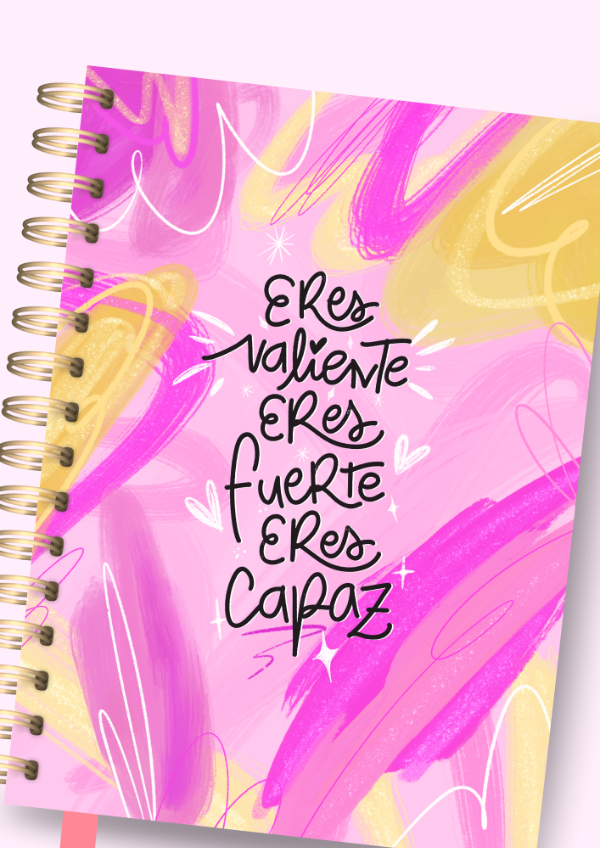 ERes
valiente
ERes
fueRte
ERes
Capaz